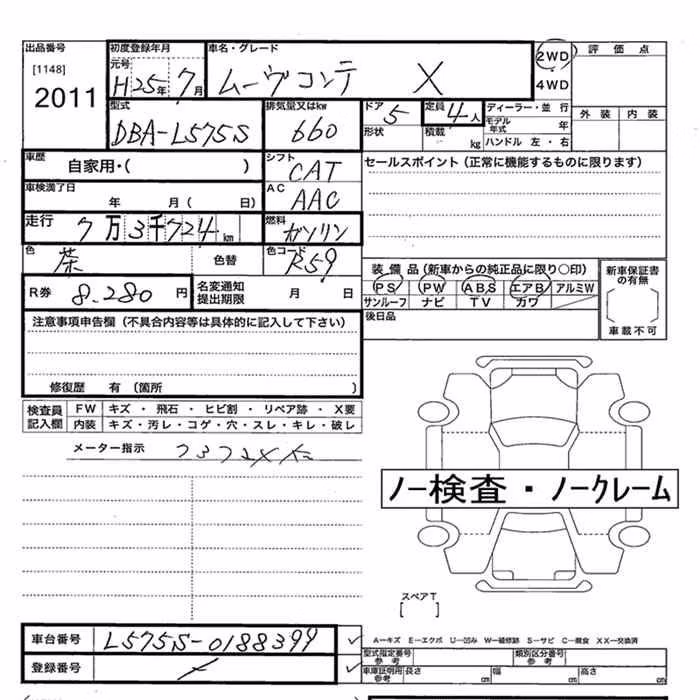 出品番号 初度登録年月 車名・グレード 2WD 評価点
[1148] 元号 4WD
2011 H25年7月 ムーヴコンテ X
型式 排気量又はkw ドア 定員 ディーラー・並行 外装 内装
DBA-L575S 660 5 4人 モデル年式 年
形状 積載 kg ハンドル 左・右
車歴 自家用・( ) シフト CAT セールスポイント(正常に機能するものに限ります)
車検満了日 年 月( 日) AC AAC
走行 7万3千724km 燃料 ガソリン
色 茶 色替 色コード R59
装備品(新車からの純正品に限り○印) 新車保証書の有無
R券 8.280円 名変通知提出期限 月 日 PS PW ABS エアB アルミW
サンルーフ ナビ TV カワ
注意事項申告欄(不具合内容等は具体的に記入して下さい) 後日品 車載不可
修復歴 有(箇所 )
検査員記入欄 FW キズ・飛石・ヒビ割・リペア跡・X要
内装 キズ・汚レ・コゲ・穴・スレ・キレ・破レ
メーター指示
ノー検査・ノークレーム
スペアT
[ ]
車台番号 L575S-0188399 A-キズ E-エクボ U-凹み W-補修跡 S-サビ C-腐食 XX-交換済
型式指定番号 参考 類別区分番号 参考
登録番号 車庫証明用 参考 長さ cm 幅 cm 高さ cm